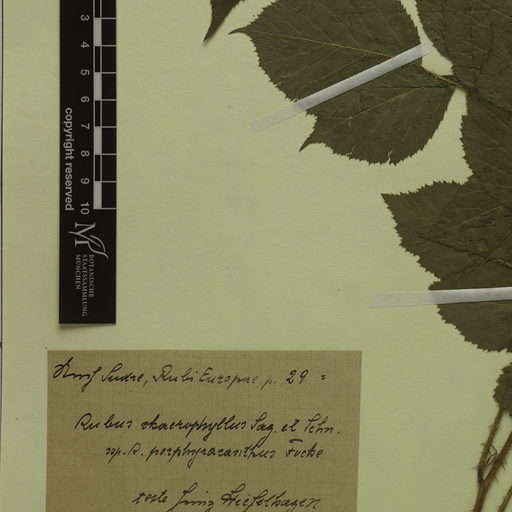 3
4
5
6
7
8
9
10
copyright reserved
BOTANISCHE
STAATSSAMMLUNG
MÜNCHEN
Sudre, Rubi Europae, p. 29 =
Rubus chaerophyllus Sag. et Schn.
ssp. R. porphyracanthus Focke
teste